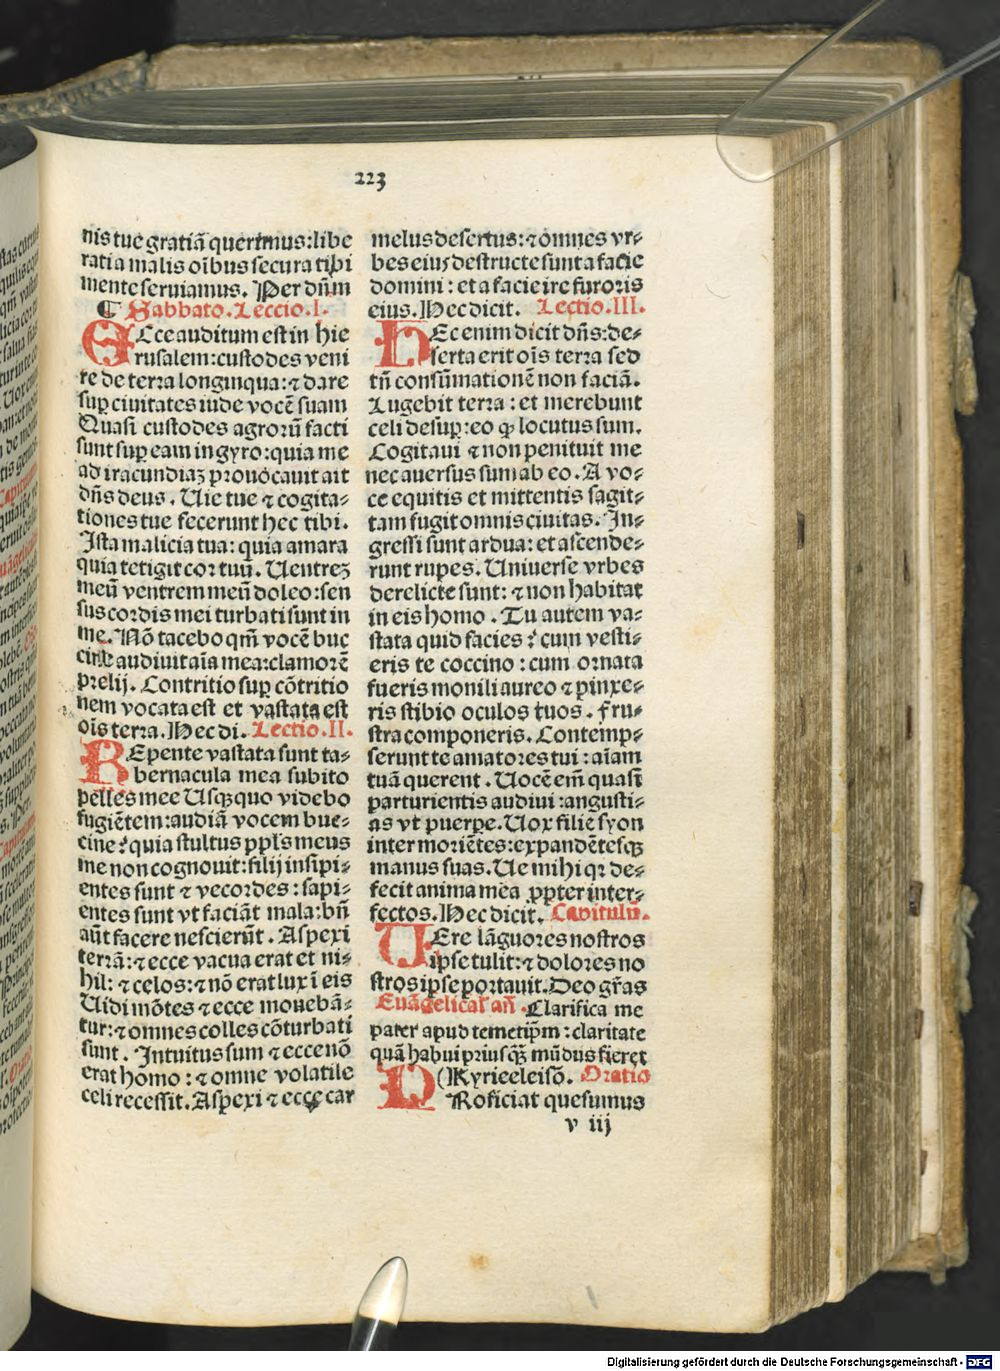 223
nis tue gratiā querimus:libe
rati a malis oībus secura tibi
mente seruiamus. Per dñm
¶ Sabbato. Leccio. I.
ECce auditum est in hie
rusalem:custodes veni
re de terra longinqua: ⁊ dare
suꝑ ciuitates iude vocē suam
Quasi custodes agrorū facti
sunt suꝑ eam in gyro: quia me
ad iracundiaꝫ prouocauit ait
dñs deus. Uie tue ⁊ cogita⸗
tiones tue fecerunt hec tibi.
Ista malicia tua: quia amara
quia tetigit cor tuū. Uentreꝫ
meū ventrem meū doleo: sen
sus cordis mei turbati sunt in
me. Nō tacebo qm̄ vocē buc
cine audiuit aīa mea:clamorē
prelij. Contritio suꝑ cōtritio
nem vocata est et vastata est
oīs terra. Hec di. Lectio. II.
REpente vastata sunt ta⸗
bernacula mea subito
pelles mee Usqꝫ quo videbo
fugiētem: audiā vocem buc⸗
cine? quia stultus ppl̄s meus
me non cognouit: filij insipi⸗
entes sunt ⁊ vecordes: sapi⸗
entes sunt vt faciāt mala: bñ
aūt facere nescierūt. Aspexi
terrā: ⁊ ecce vacua erat et ni⸗
hil: ⁊ celos: ⁊ nō erat lux ī eis
Uidi mōtes ⁊ ecce mouebā⸗
tur: ⁊ omnes colles cōturbati
sunt. Intuitus sum ⁊ ecce nō
erat homo: ⁊ omne volatile
celi recessit. Aspexi ⁊ ecce car
melus desertus: ⁊ omnes vr⸗
bes eius destructe sunt a facie
domini: et a facie ire furoris
eius. Hec dicit. Lectio. III.
HEc enim dicit dñs: de⸗
serta erit oīs terra sed
tñ consūmationē non faciā.
Lugebit terra: et merebunt
celi desuꝑ: eo ꝙ locutus sum.
Cogitaui ⁊ non penituit me
nec auersus sum ab eo. A vo⸗
ce equitis et mittentis sagit⸗
tam fugit omnis ciuitas. In⸗
gressi sunt ardua: et ascende⸗
runt rupes. Uniuerse vrbes
derelicte sunt: ⁊ non habitat
in eis homo. Tu autem va⸗
stata quid facies? cum vesti⸗
eris te coccino: cum ornata
fueris monili aureo ⁊ pinxe⸗
ris stibio oculos tuos. fru⸗
stra componeris. Contemp⸗
serunt te amatores tui: aīam
tuā querent. Uocē em̄ quasi
parturientis audiui: angusti⸗
as vt puerpe. Uox filie syon
inter moriētes: expandētesqꝫ
manus suas. Ue mihi qꝛ de⸗
fecit anima mea ꝓpter inter⸗
fectos. Hec dicit. Capitulū.
UEre lāguores nostros
ipse tulit: ⁊ dolores no
stros ipse portauit. Deo gr̄as
Euāgelicaꝉ añ. Clarifica me
pater apud temetip̄m: claritate
quā habui priusqꝫ mūdus fieret
(Kyrieeleisō. Oratio
PRoficiat quesumus
v iij
Digitalisierung gefördert durch die Deutsche Forschungsgemeinschaft - DFG